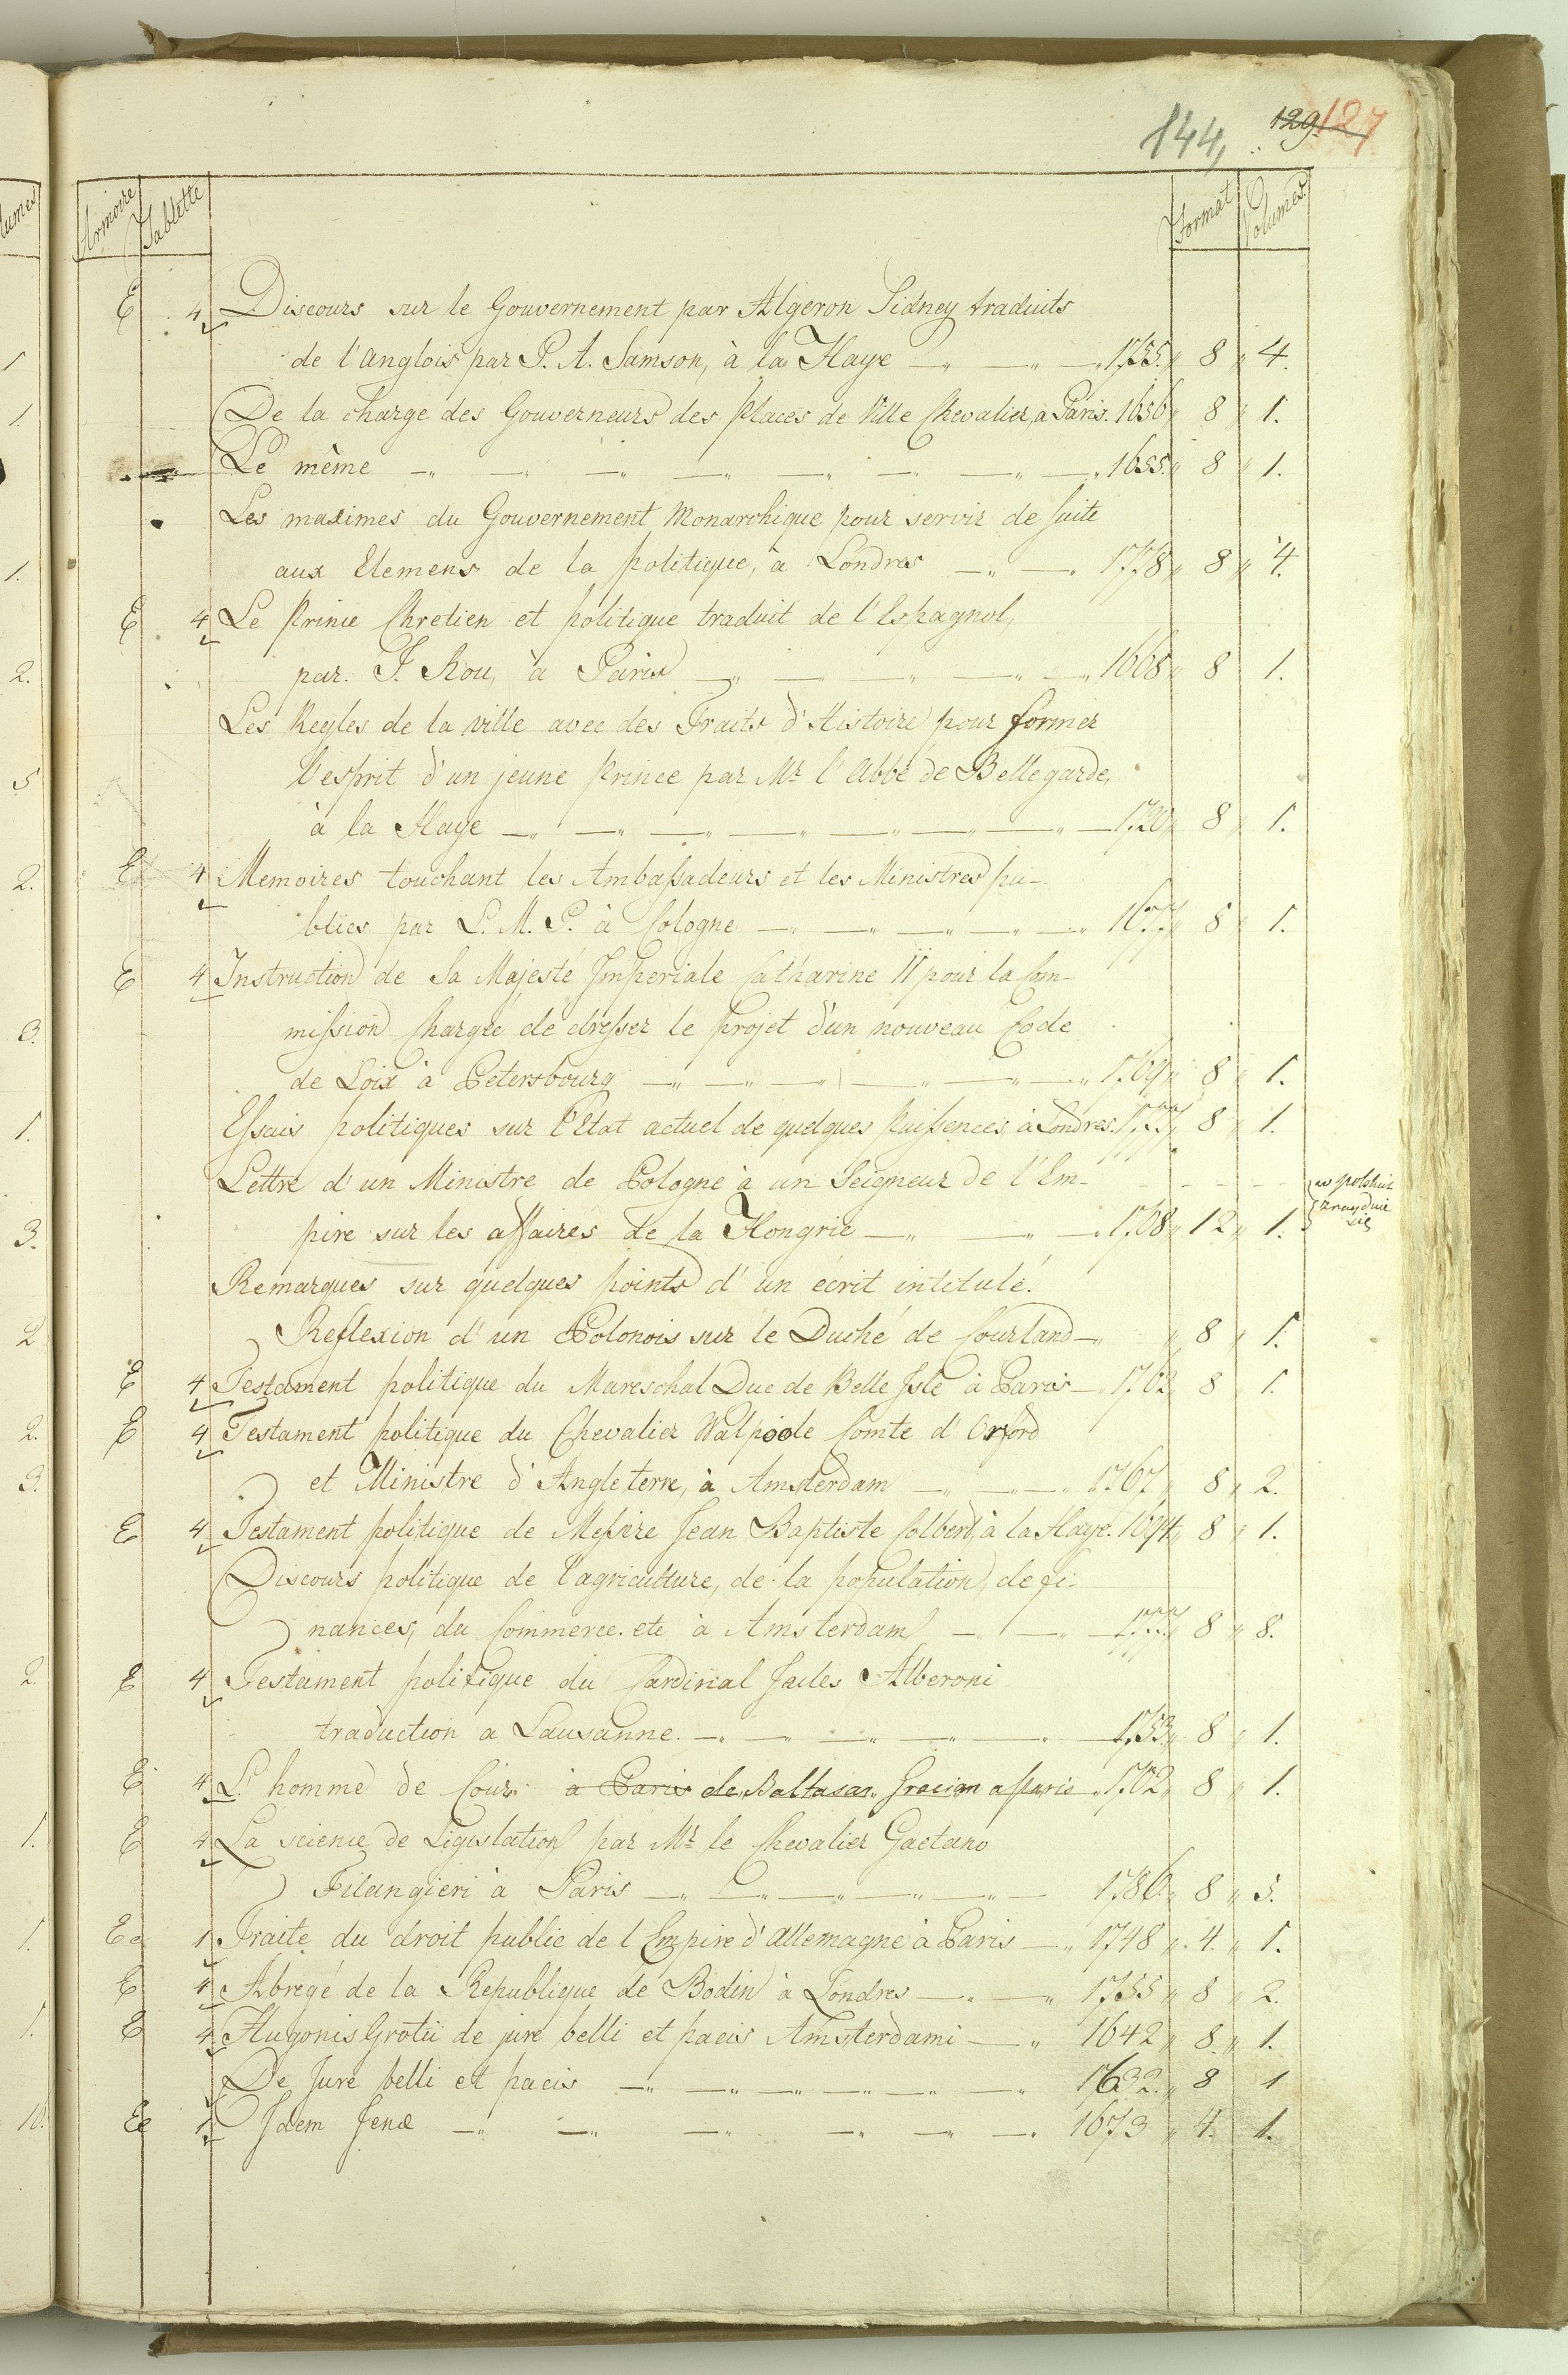 144, 129 127
Armoire Tablette Format Volumes
E 4 Discours sur le Gouvernement par Algeron Sidney traduits
de l'anglois par P. A. Samson, à la Haye 1755. 8 4.
De la charge des Gouverneurs des Places de Ville Chevalier, a Paris. 1656 8 1.
Le même 1655. 8 1.
Les maximes du Gouvernement Monarchique pour servir de suite
aux Elemens de la politique, à Londres 1778 8 4.
E 4 Le Prince Chretien et politique traduit de l'Espagnol,
par. J. Rou, à Paris 1668 8 1.
Les Regles de la ville avec des Traits d'Histoire pour former
l'esprit d'un jeune Prince par Mr l'Abbé de Bellegarde,
à la Haye 1720 8 1.
E 4 Memoires touchant les Ambassadeurs et les Ministres pu-
blics par L. M. P. à Cologne 1677 8 1.
E 4 Instruction de Sa Majesté Imperiale Catharine II pour la Com-
mission Chargée de dresser le Projet d'un nouveau Code
de Loix à Petersbourg 1769 8 1.
Essais politiques sur l'Etat actuel de quelques Puissences, à Londres. 1777 8 1.
Lettre d'un Ministre de Pologne à un Seigneur de l'Em-
pire sur les affaires de la Hongrie 1768 12 1.
w polskich
znayduie
się
Remarques sur quelques points d'un écrit intitulé.
Reflexion d'un Polonois sur le Duché de Courland 8 1.
E 4 Testament politique du Mareschal Duc de Belle Isle à Paris 1762 8 1.
E 4 Testament politique du Chevalier Walpoole Comte d'Orford
et Ministre d'Angleterre, à Amsterdam 1767 8 2.
E 4 Testament politique de Messire Jean Baptiste Colbert, à la Haye. 1694 8 1.
Discours politique de l'agriculture, de la population, de fi-
nances, du Commerce. etc à Amsterdam 1777 8 8.
E 4 Testament politique du Cardinal Jules Alberoni
traduction a Lausanne. 1753 8 1.
E 4 L'homme de Cour à Paris de Baltasar Gracian a Paris 1702 8 1.
E 4 La science de Ligislation par Mr le Chevalier Gaetano
Filangieri à Paris 1786. 8 5.
Ee 1 Traite du droit public de l'Empire d'Allemagne à Paris 1748 4. 1.
E 4 Abregé de la Republique de Bodin à Londres 1755 8 2.
E 4 Hugonis Grotii de jure belli et pacis Amsterdami 1642 8 1.
De Jure belli et pacis 1632. 8 1
Ee 1 Idem Jenæ 1673 4. 1.